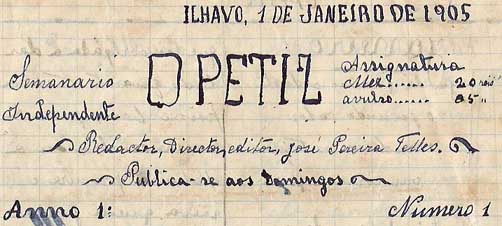 ILHAVO, 1 DE JANEIRO DE 1905
Semanario
Independente
O PETIZ
Assignatura
Mez...... 20 reis
avulso...... 05 "
Redactor, Director, editor, José Pereira Telles.
Publica-se aos Domingos
Anno 1: Numero 1